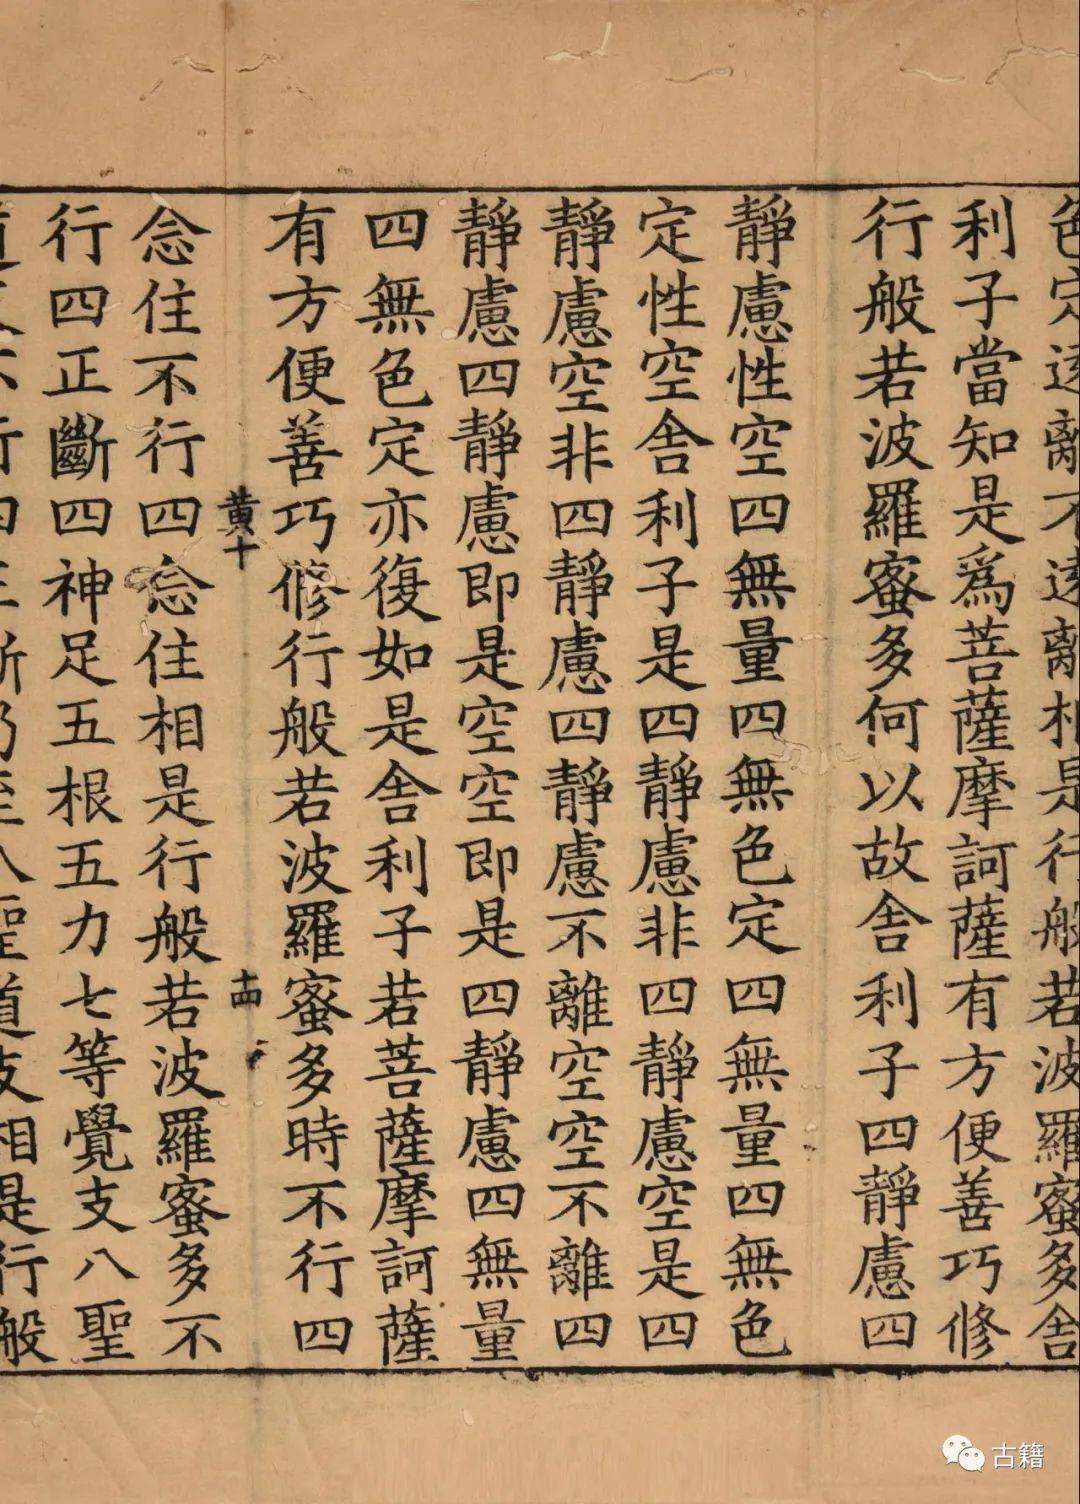 色定遠離不遠離相是行般若波羅蜜多舍
利子當知是爲菩薩摩訶薩有方便善巧修
行般若波羅蜜多何以故舍利子四靜慮四
靜慮性空四無量四無色定四無量四無色
定性空舍利子是四靜慮非四靜慮空是四
靜慮空非四靜慮四靜慮不離空空不離四
靜慮四靜慮即是空空即是四靜慮四無量
四無色定亦復如是舍利子若菩薩摩訶薩
有方便善巧修行般若波羅蜜多時不行四
黄十 十四
念住不行四念住相是行般若波羅蜜多不
行四正斷四神足五根五力七等覺支八聖
道支不行四正斷乃至八聖道支相是行般
古籍